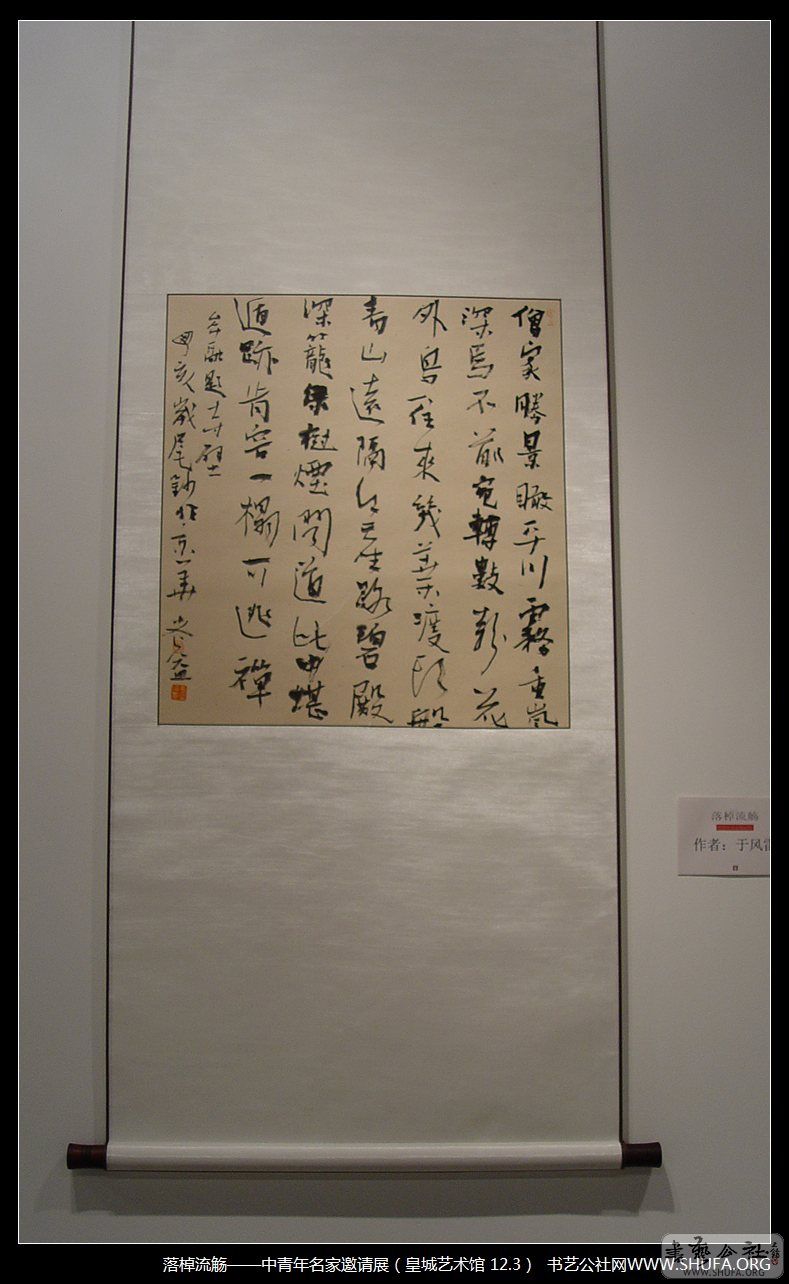 僧家勝景瞰平川霧重嵐
深馬不前宛轉數聲花
外鳥往來幾葉渡頭
青山遠隔紅塵路碧殿
深籠綠樹煙聞道此中堪
遁跡肯容一榻可逃禪
題
丁亥歲尾鈔於京華
落棹流觞
作者：于风
书艺公社
WWW.SHUFA.ORG
落棹流觞——中青年名家邀请展（皇城艺术馆 12.3） 书艺公社网WWW.SHUFA.ORG